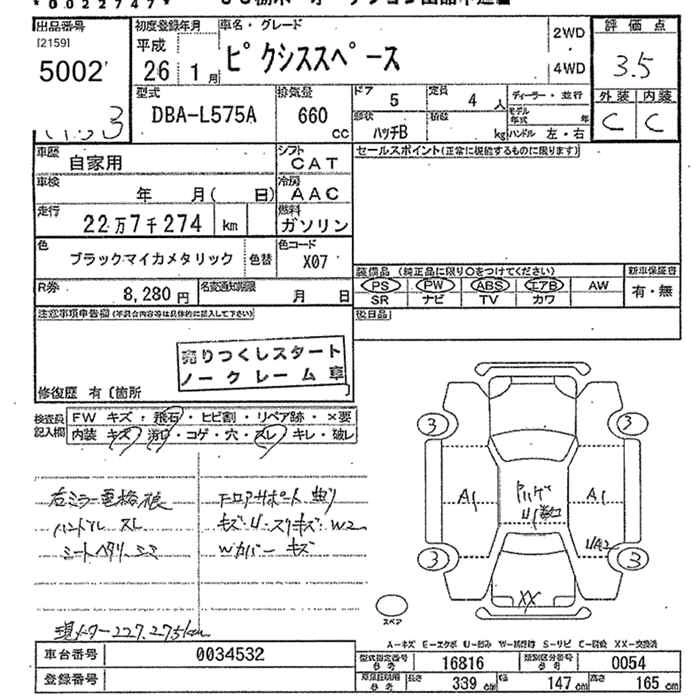 *0022747*
出品番号
[2159]
5002
3
初度登録年月
平成
26 1月
車名・グレード
ピクシススペース
2WD
4WD
評価点
3.5
型式
DBA-L575A
排気量
660
cc
ドア
5
定員
4人
ディーラー・並行
モデル年式 年
形状
ハッチB
積載
kg
ハンドル 左・右
外装 内装
C C
車歴
自家用
シフト
CAT
セールスポイント(正常に機能するものに限ります)
車検
年 月( 日)
冷房
AAC
走行
22万7千274 km
燃料
ガソリン
色
ブラックマイカメタリック
色替
色コード
X07
装備品 (純正品に限り○をつけてください)
新車保証書
PS PW ABS エアB AW
有・無
SR ナビ TV カワ
R券
8,280円
名変通知期限
月 日
注意事項申告欄(不具合内容等は具体的に記入して下さい)
後日品
売りつくしスタート
ノークレーム車
修復歴 有〔箇所 〕
検査員記入欄
FW キズ・飛石・ヒビ割・リペア跡・×要
内装 キズ・汚れ・コゲ・穴・スレ・キレ・破レ
右ミラー
ハンドル スレ
シートヘタリ シミ
フロアサポート 曲り
キズ・U・スリキズ W2
Wカバー キズ
現メーター227,275km
3
3
3
3
A1
A1
U1
XX
スペア
A-キズ E-エクボ U-凹み W-補修跡 S-サビ C-腐蝕 XX-交換済
車台番号
0034532
型式指定番号
参考
16816
類別区分番号
参考
0054
登録番号
参考
長さ
339 cm
幅
147 cm
高さ
165 cm